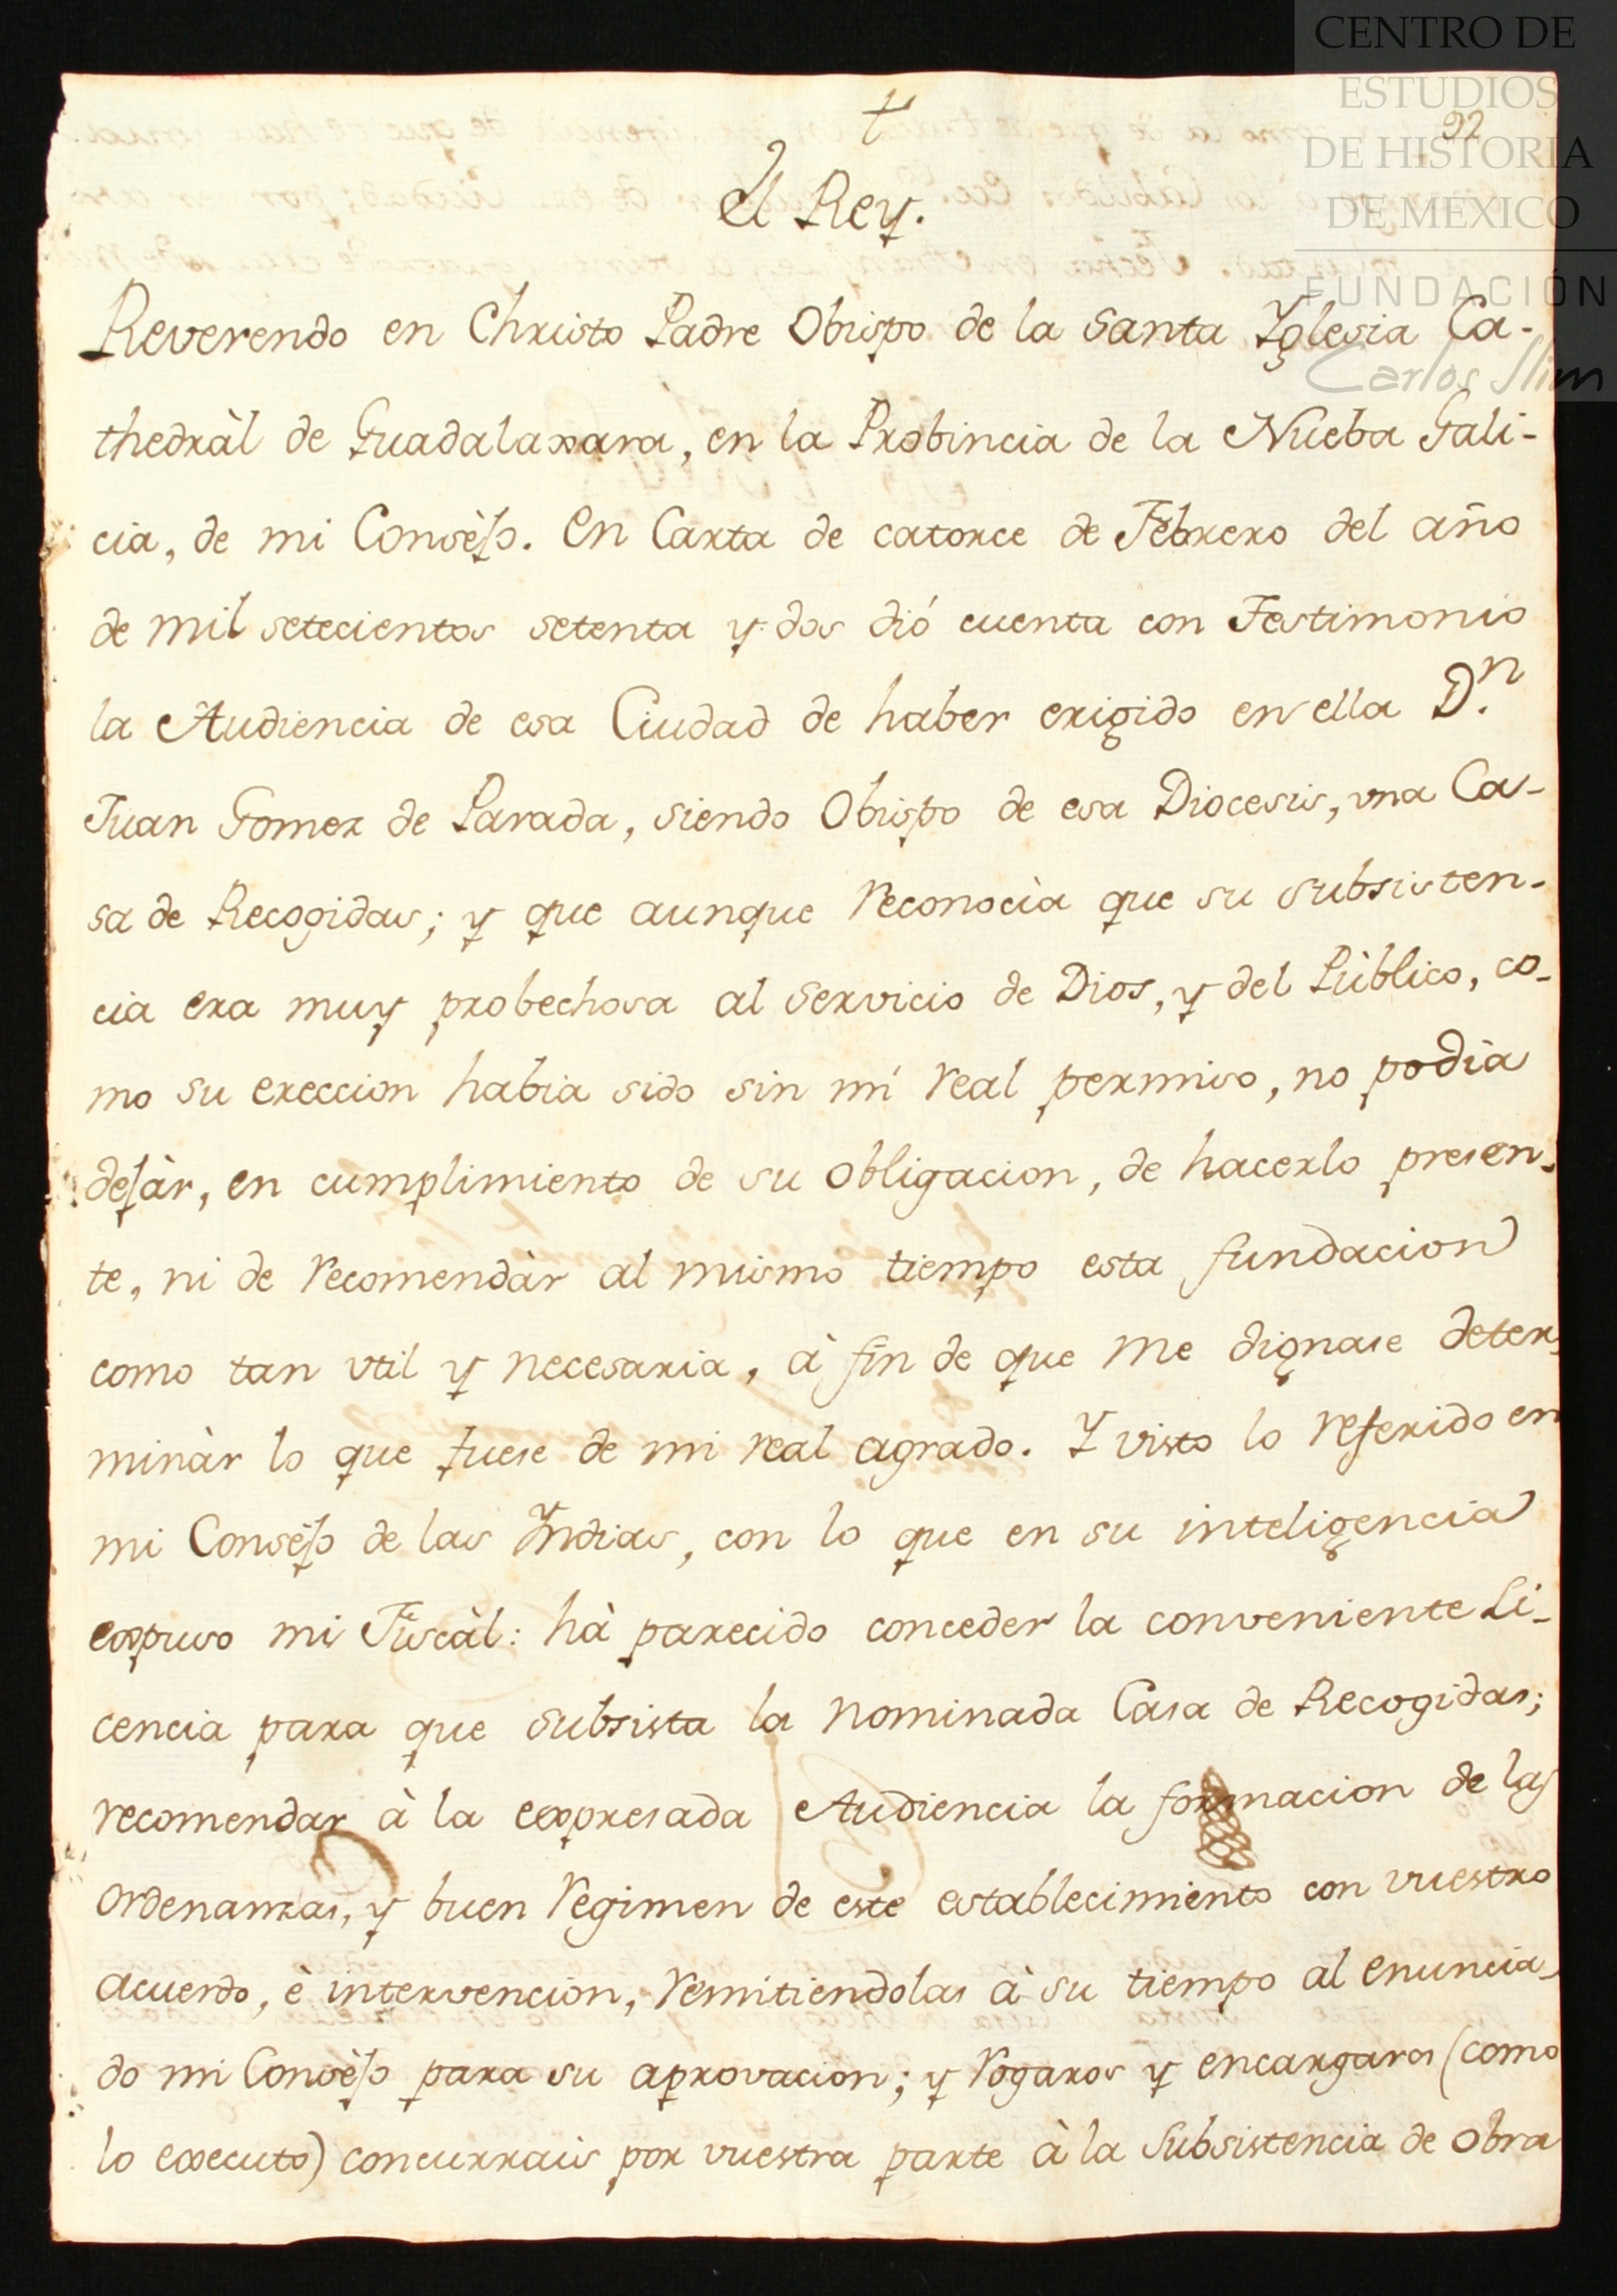 CENTRO DE
ESTUDIOS
DE HISTORIA
DE MEXICO
FUNDACIÓN
Carlos Slim
92
El Rey.
Reverendo en Christo Padre Obispo de la Santa Yglesia Ca-
thedràl de Guadalaxara, en la Probincia de la Nueba Gali-
cia, de mi Consèjo. En Carta de catorce de Febrero del año
de mil setecientos setenta y dos dió cuenta con Testimonio
la Audiencia de esa Ciudad de haber erigido en ella D.n
Juan Gomez de Parada, siendo Obispo de esa Diocesis, vna Ca-
sa de Recogidas; y que aunque reconocìa que su subsisten-
cia era muy probechosa al servicio de Dios, y del Pùblico, co-
mo su ereccion habia sido sin mi real permiso, no podìa
dejàr, en cumplimiento de su obligacion, de hacerlo presen-
te, ni de recomendàr al mismo tiempo esta fundacion
como tan vtil y necesaria, à fin de que me dignase deter-
minàr lo que fuese de mi real agrado. Y visto lo referido en
mi Consejo de las Yndias, con lo que en su inteligencia
expuso mi Fiscàl: hà parecido conceder la conveniente Li-
cencia para que subsista la nominada Casa de Recogidas;
recomendar à la expresada Audiencia la formacion de las
ordenanzas, y buen regimen de este establecimiento con vuestro
acuerdo, è intervencion, remitiendolas à su tiempo al enuncia-
do mi Consèjo para su aprovacion; y rogaros y encargaros (como
lo executo) concurrais por vuestra parte à la subsistencia de obra